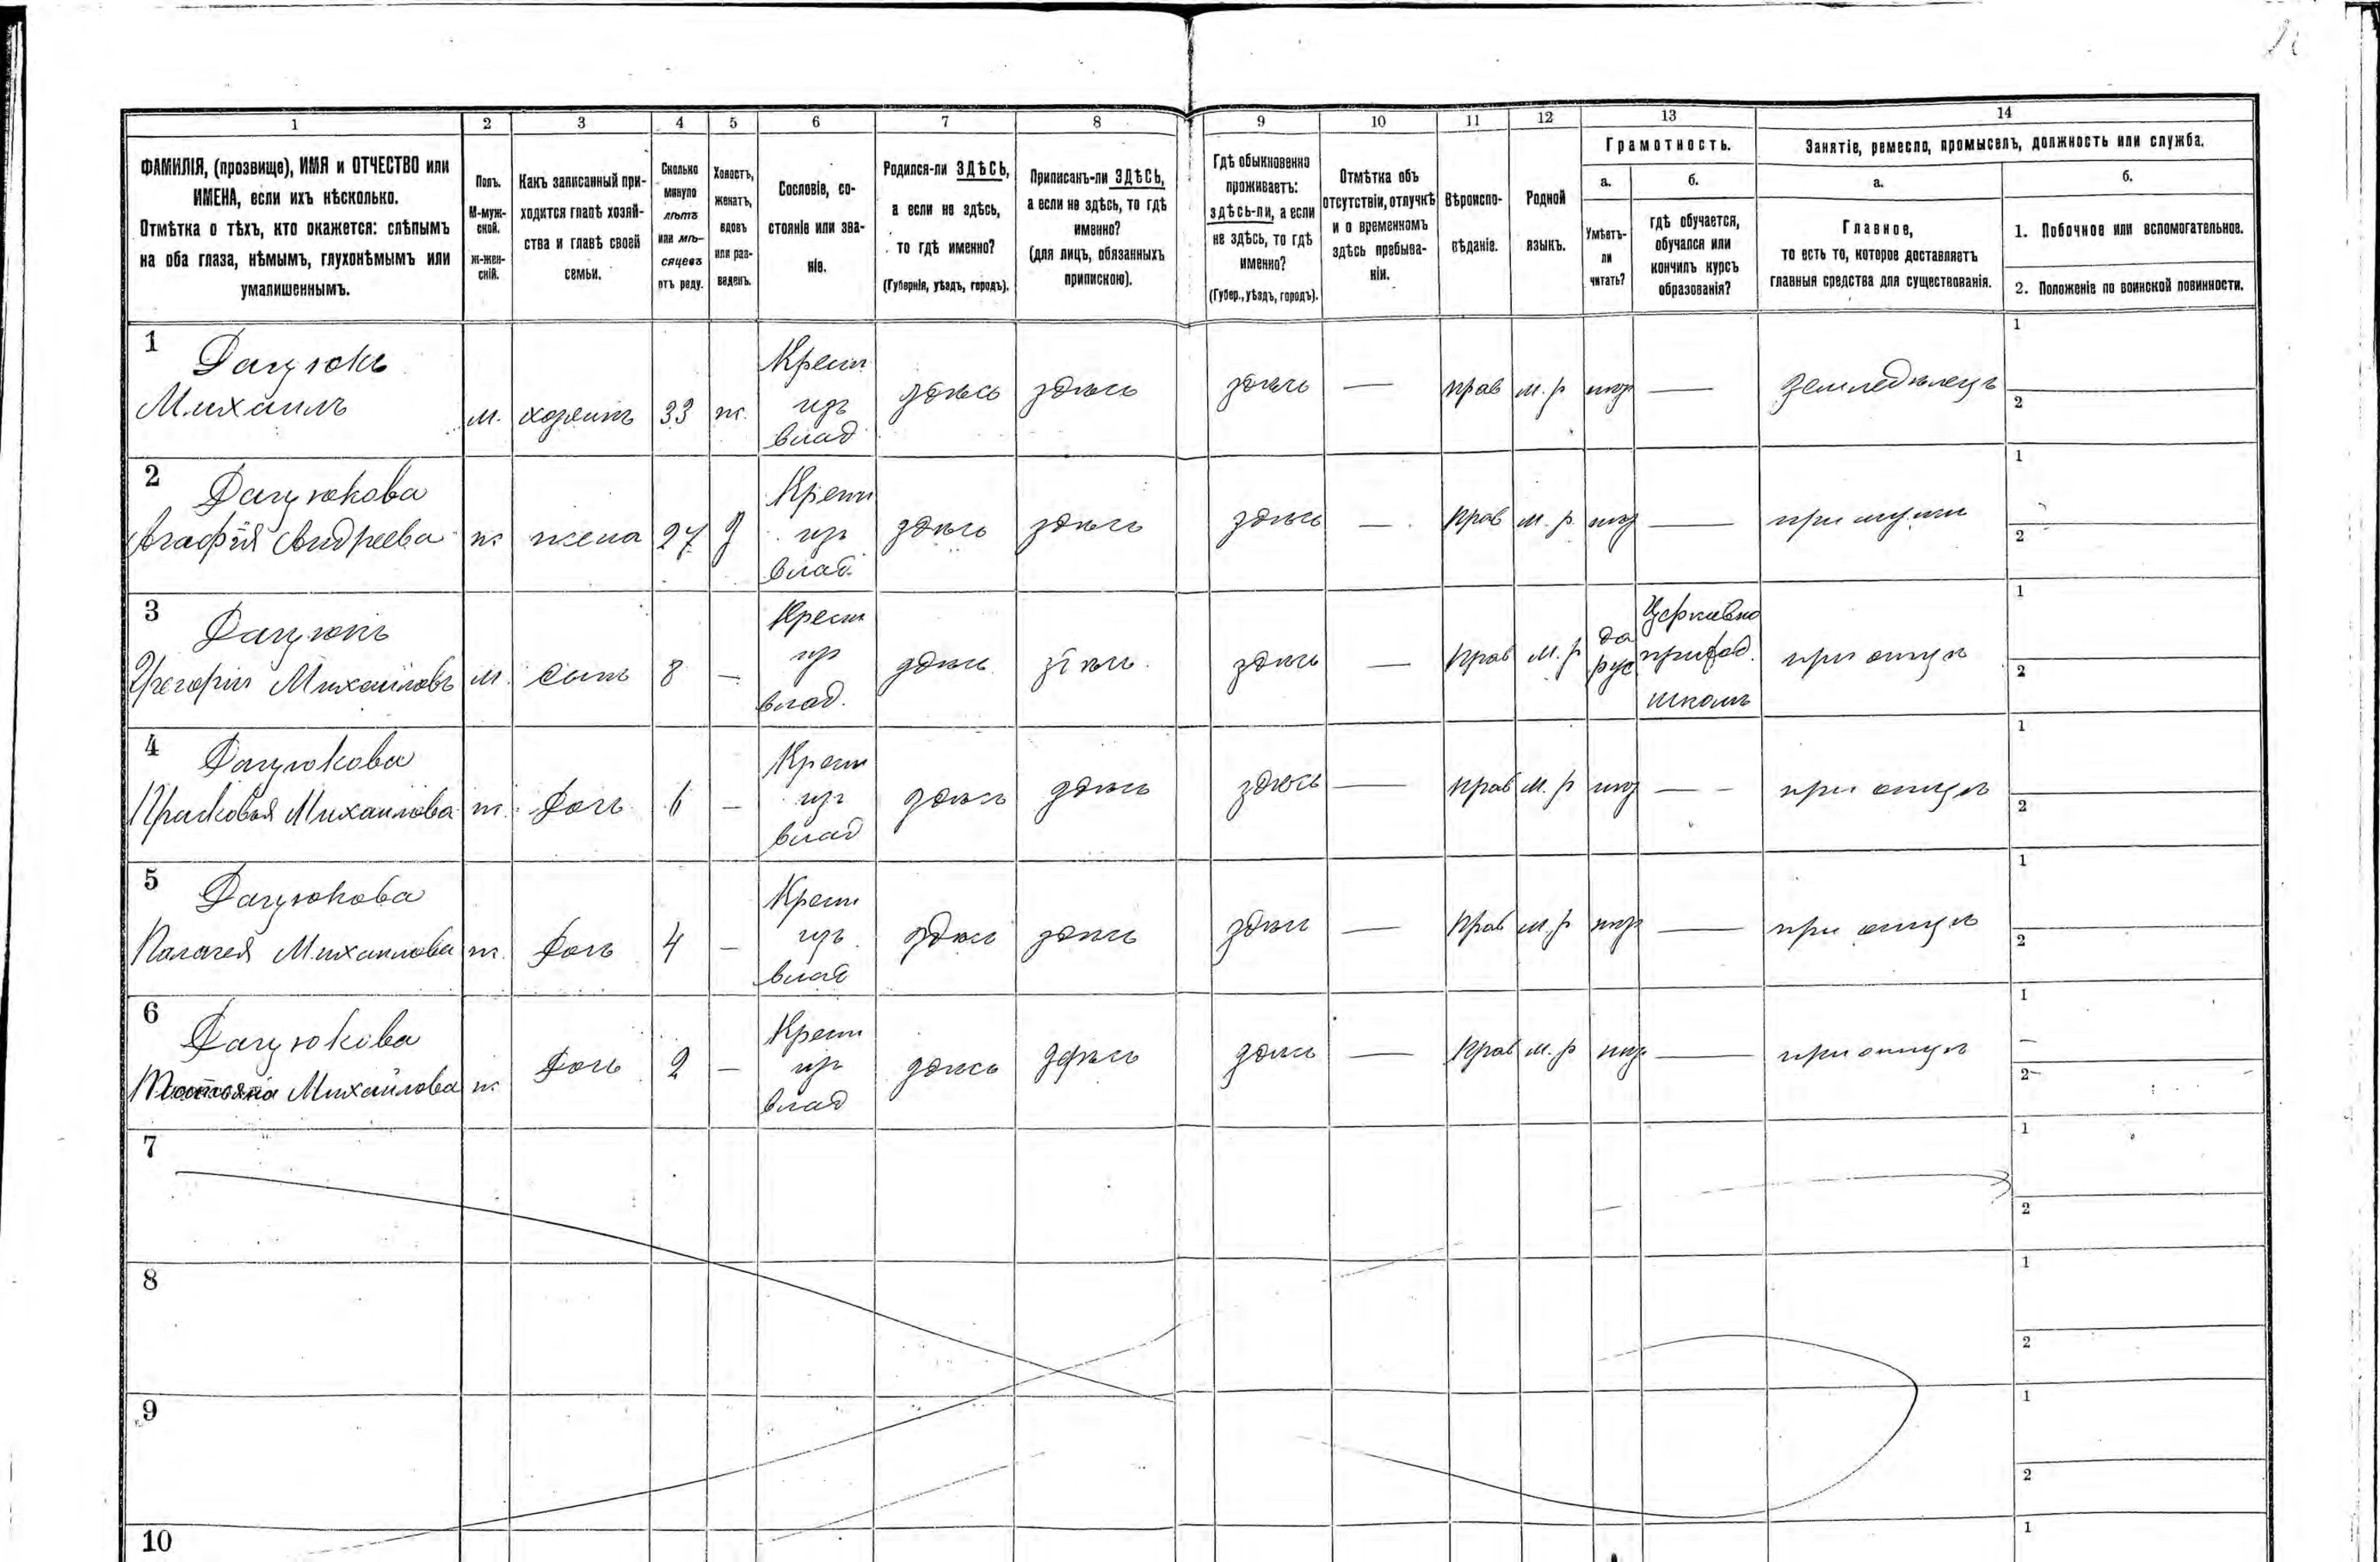 1 2 3 4 5 6 7 8 9 10 11 12 13 14
ФАМИЛІЯ, (прозвище), ИМЯ и ОТЧЕСТВО или
ИМЕНА, если ихъ нѣсколько.
Отмѣтка о тѣхъ, кто окажется: слѣпымъ
на оба глаза, нѣмымъ, глухонѣмымъ или
умалишеннымъ.
Полъ.
М-муж-
ской.
ж-жен-
скій.
Какъ записанный при-
ходится главѣ хозяй-
ства и главѣ своей
семьи.
Сколько
минуло
лѣтъ
или мѣ-
сяцевъ
отъ роду.
Холостъ,
женатъ,
вдовъ
или раз-
веденъ.
Сословіе, со-
стояніе или зва-
ніе.
Родился-ли ЗДѢСЬ,
а если не здѣсь,
то гдѣ именно?
(Губернія, уѣздъ, городъ).
Приписанъ-ли ЗДѢСЬ,
а если не здѣсь, то гдѣ
именно?
(для лицъ, обязанныхъ
припискою).
Гдѣ обыкновенно
проживаетъ:
здѣсь-ли, а если
не здѣсь, то гдѣ
именно?
(Губер., уѣздъ, городъ).
Отмѣтка объ
отсутствіи, отлучкѣ
и о временномъ
здѣсь пребыва-
ніи.
Вѣроиспо-
вѣданіе.
Родной
языкъ.
Грамотность.
а.
Умѣетъ-
ли
читать?
б.
гдѣ обучается,
обучался или
кончилъ курсъ
образованія?
Занятіе, ремесло, промыселъ, должность или служба.
а.
Главное,
то есть то, которое доставляетъ
главныя средства для существованія.
б.
1. Побочное или вспомогательное.
2. Положеніе по воинской повинности.
1
Дацюкъ
Михаилъ
м. хозяинъ 33 ж.
Крест
изъ
влад
здѣсь здѣсь здѣсь — прав м. р — земледѣлецъ
1
2
2
Дацюкова
Агафія Андреева
ж жена 27
Крест
изъ
влад.
здѣсь здѣсь здѣсь — прав м. р —
1
2
3
Дацюкъ
Грегорій Михаиловъ
м. сынъ 8 —
Крест
из
влад.
здѣсь здѣсь здѣсь — прав м. р
да
рус
Церковно
приход.
школѣ
при отцѣ
1
2
4
Дацюкова
Прасковья Михаилова
ж. дочь 6 —
Крест
изъ
влад
здѣсь здѣсь здѣсь — прав м. р — при отцѣ
1
2
5
Дацюкова
Палагея Михаилова
ж. дочь 4 —
Крест
изъ
влад
здѣсь здѣсь здѣсь — прав м. р — при отцѣ
1
2
6
Дацюкова
Татьяна Михаилова
ж. дочь 2 —
Крест
изъ
влад
здѣсь здѣсь здѣсь — прав м. р — при отцѣ
1
2
7
1
2
8
1
2
9
1
2
10
1